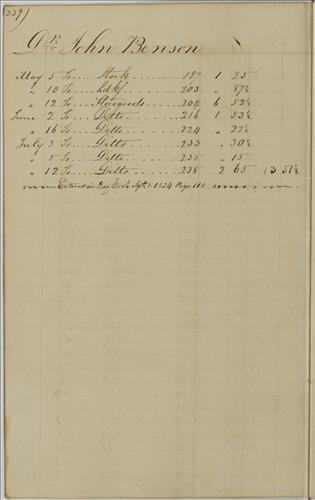 339)
Dr John Benson
May 5 To .... Stock ........ 197 1 25
" 10 To .... hdkf ........ 203 " 87½
" 12 To .... Storegoods .... 204 6 52½
June 2 To .... Ditto ........ 216 1 53½
" 16 To .... Ditto ........ 224 " 22½
July 3 To .... Ditto ........ 233 " 30½
" 5 To .... Ditto ........ 235 " 15
" 12 To .... Ditto ........ 238 2 65 13 51½
Entered in Day Book Sept 1. 1834 Page